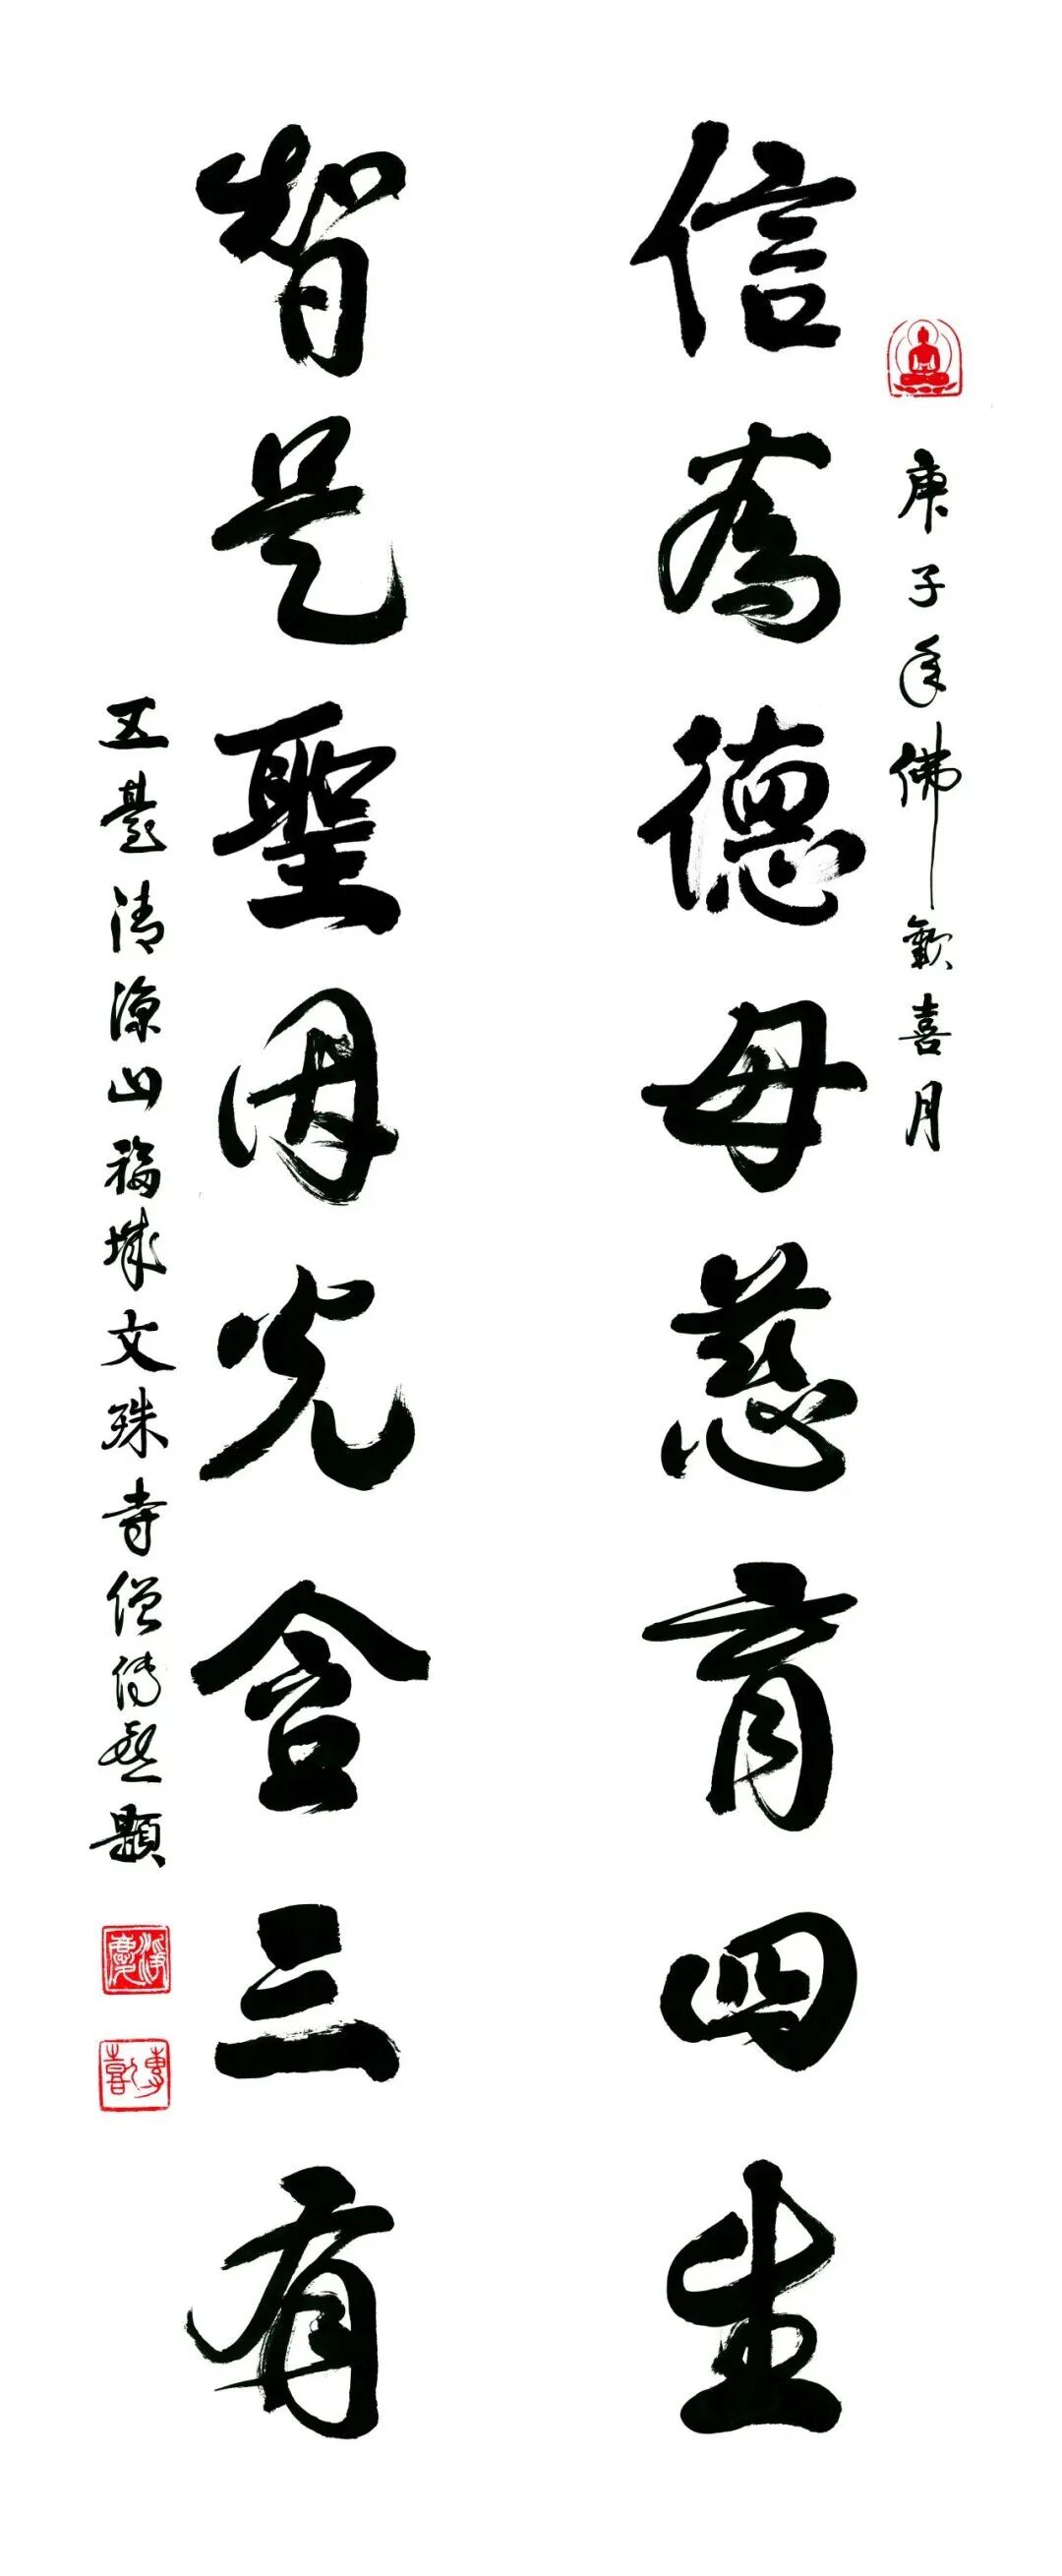 庚子年佛歡喜月
信為德母慈育四生
智是聖因光含三有
五臺清涼山福城文殊寺僧傳喜題
淨慶
傳喜